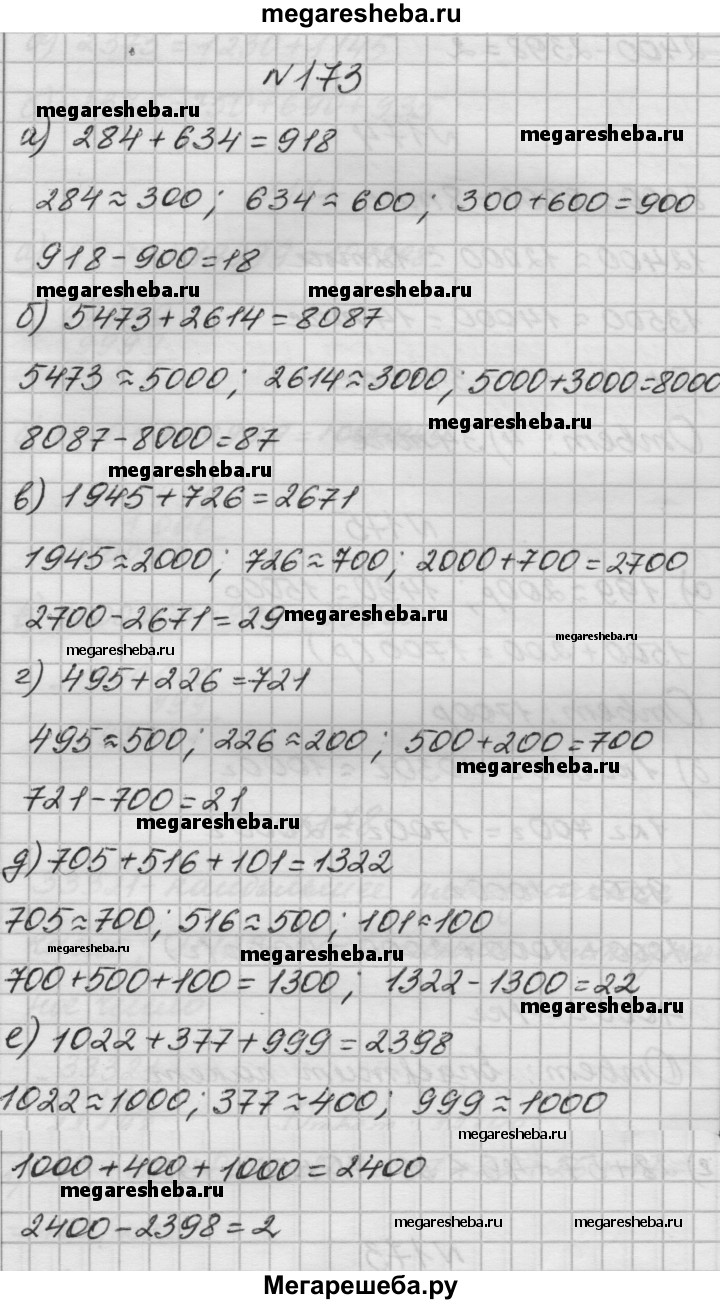 megaresheba.ru
№173
megaresheba.ru
а) 284+634=918
megaresheba.ru
284≈300; 634≈600; 300+600=900
918-900=18
megaresheba.ru megaresheba.ru
б) 5473+2614=8087
5473≈5000; 2614≈3000; 5000+3000=8000
megaresheba.ru
8087-8000=87
megaresheba.ru
в) 1945+726=2671
1945≈2000; 726≈700; 2000+700=2700
2700-2671=29
megaresheba.ru
megaresheba.ru
megaresheba.ru
г) 495+226=721
495≈500; 226≈200; 500+200=700
megaresheba.ru
721-700=21
megaresheba.ru
д) 705+516+101=1322
705≈700; 516≈500; 101≈100
megaresheba.ru
megaresheba.ru
700+500+100=1300; 1322-1300=22
megaresheba.ru
е) 1022+377+999=2398
1022≈1000; 377≈400; 999≈1000
megaresheba.ru
1000+400+1000=2400
megaresheba.ru
2400-2398=2
megaresheba.ru megaresheba.ru
Мегарешеба.ру